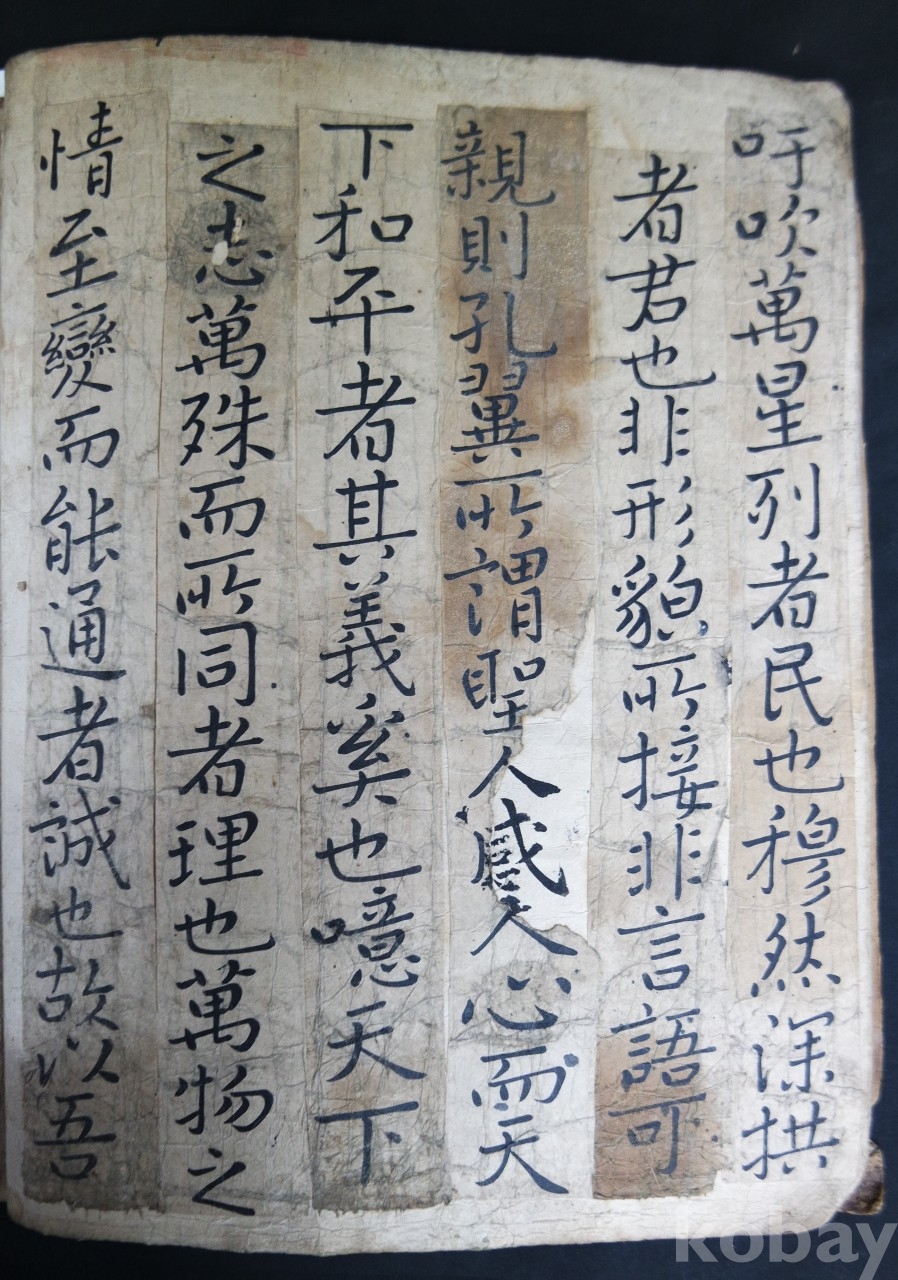 吁吹萬星列者民也穆然深拱
者君也非形貌所接非言語可
親則孔翼所謂聖人感人心而天
下和平者其義奚也噫天下
之志萬殊而所同者理也萬物之
情至變而能通者誠也故以吾
kobay